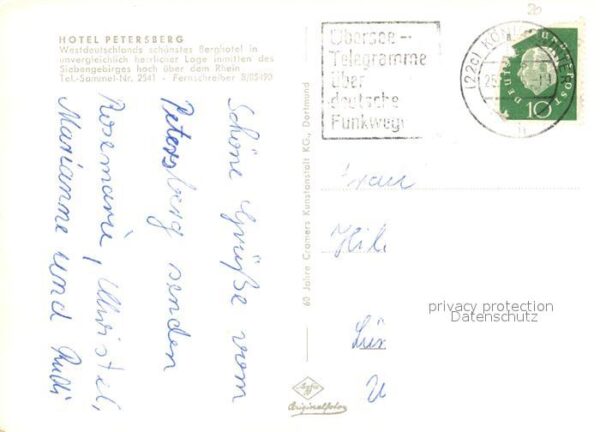 HOTEL PETERSBERG
Westdeutschlands schönstes Berghotel in
unvergleichlich herrlicher Lage inmitten des
Siebengebirges hoch über dem Rhein
Tel.-Sammel-Nr. 2541 - Fernschreiber
Schöne Grüße vom
Petersberg senden
Rosemarie, Christel,
Marianne und Rudi
60 Jahre Cramers Kunstanstalt KG., Dortmund
Übersee-
Telegramme
über
deutsche
Funkwege
(22c) KÖNI
25
DEUT POST
10
Frau
Hil
privacy protection
Datenschutz
Lü
Agfa
Originalfoto